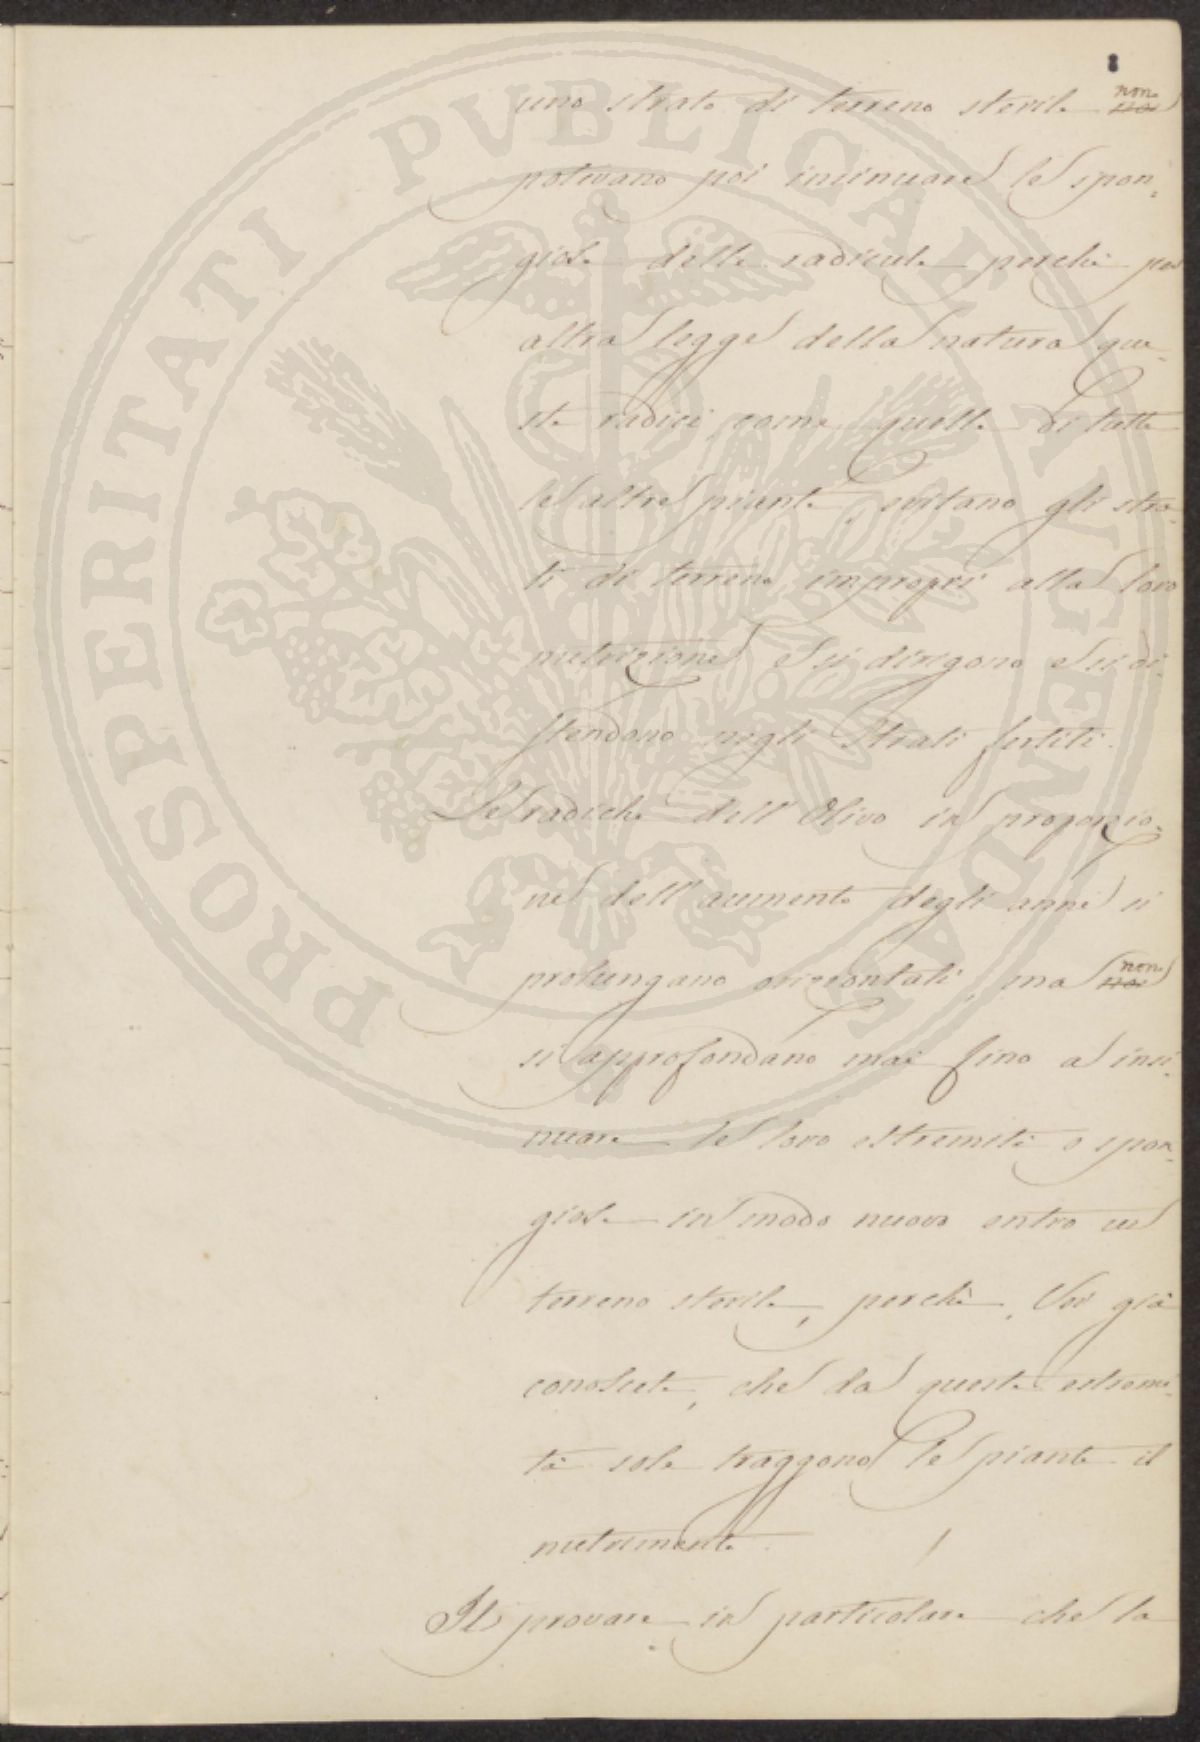 uno strato di terreno sterile non
potevano poi insinuare le spon-
giole delle radicule perchè per
altra legge della natura que-
ste radici, come quelle di tutte
le altre piante, evitano gli stra-
ti di terreno impropri alla loro
nutrizione e si dirigono e si di-
stendono negli strati fertili.
Le radiche dell'Olivo in proporzio-
ne dell'aumento degli anni si
prolungano orizzontali, ma non
si approfondano mai fino ad insi-
nuare le loro estremità o spon-
giole in modo nuovo entro un
terreno sterile, perchè, Voi già
conoscete, che da queste estremi-
tà sole traggono le piante il
nutrimento.
Il provare in particolare che la
PROSPERITATI PVBLICAE AVGENDAE